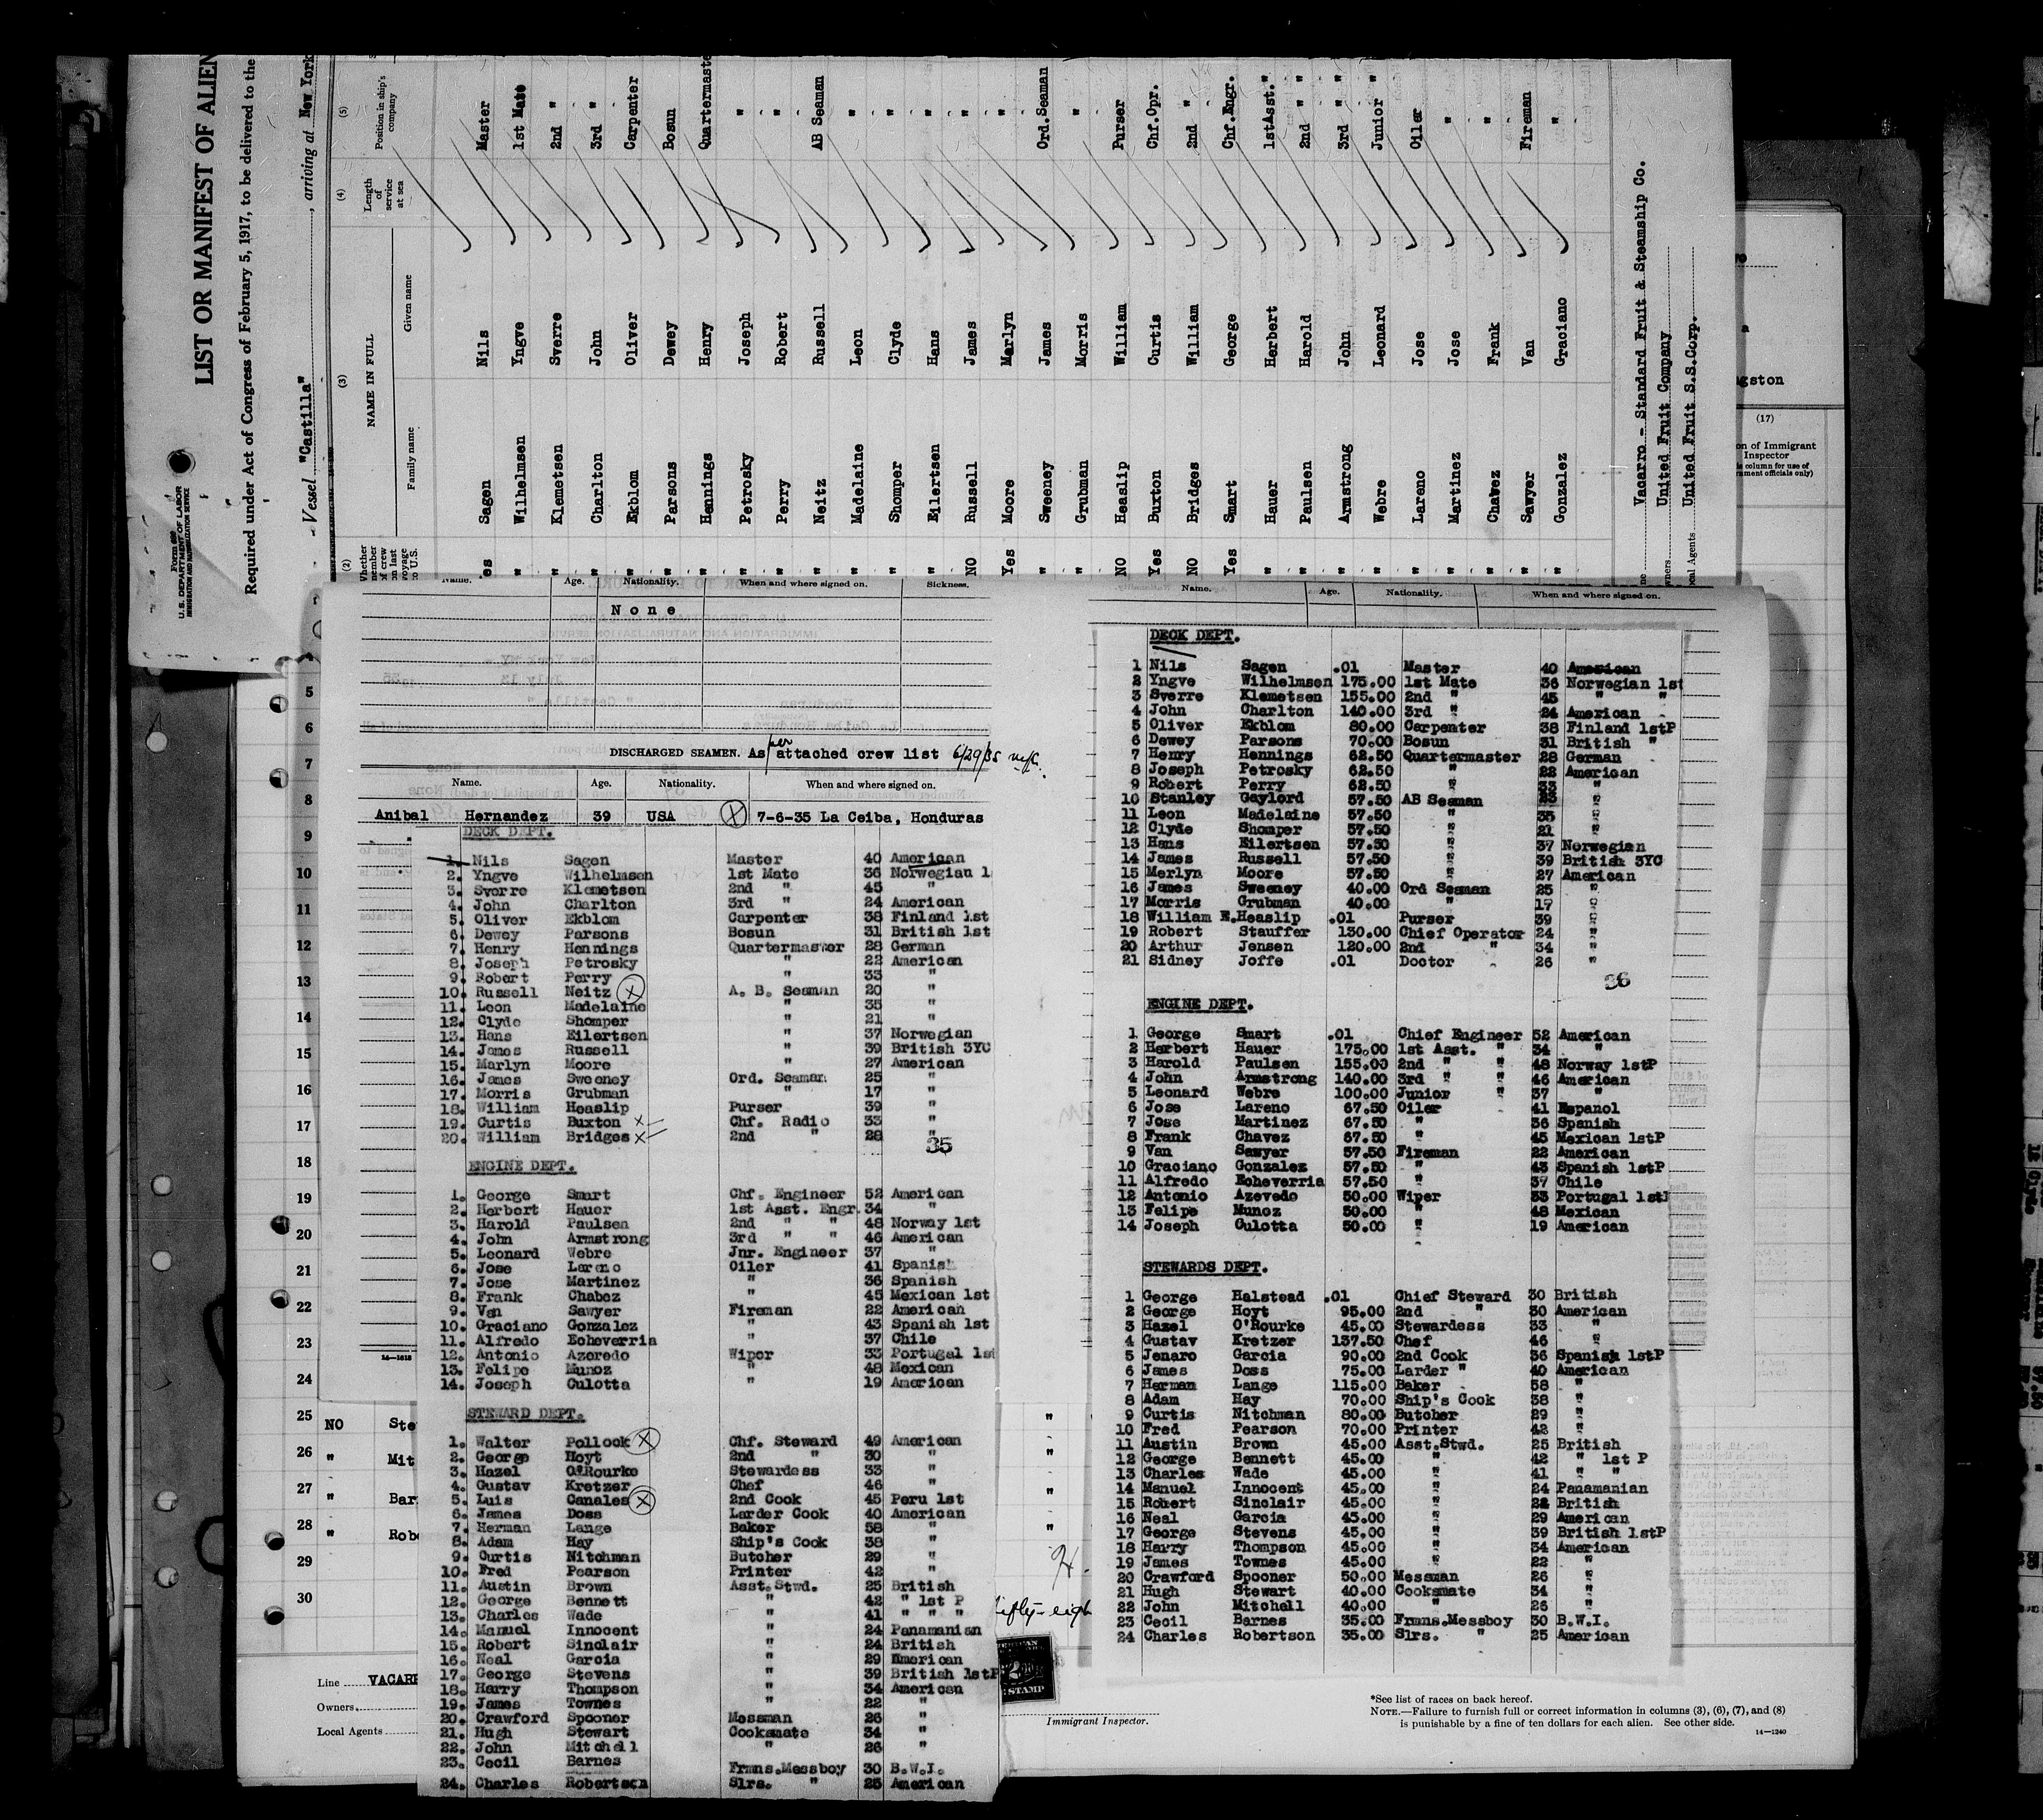 LIST OR MANIFEST OF ALIEN
Required under Act of Congress of February 5, 1917, to be delivered to the
U.S. DEPARTMENT OF LABOR
IMMIGRATION AND NATURALIZATION SERVICE
Vessel "Castilla" , arriving at New York
(2) (3) (4) (5)
Whether member of crew on last voyage to U.S.
NAME IN FULL
Family name Given name
Length of service at sea
Position in ship's company
es Sagen Nils Master
" Wilhelmsen Yngve 1st Mate
" Klemetsen Sverre 2nd "
" Charlton John 3rd "
" Ekblom Oliver Carpenter
" Parsons Dewey Bosun
" Hennings Henry Quartermaste
" Petrosky Joseph "
" Perry Robert "
" Neitz Russell AB Seaman
" Madelaine Leon "
" Shomper Clyde "
" Eilertsen Hans "
NO Russell James "
Yes Moore Marlyn "
" Sweeney James Ord.Seaman
" Grubman Morris "
NO Heaslip William Purser
Yes Buxton Curtis Chf.Opr.
NO Bridges William 2nd "
Yes Smart George Chf.Engr.
" Hauer Herbert 1stAsst."
" Paulsen Harold 2nd " "
" Armstrong John 3rd " "
" Webre Leonard Junior "
" Lareno Jose Oiler
" Martinez Jose "
" Chavez Frank "
" Sawyer Van Fireman
" Gonzalez Graciano "
Vacarro - Standard Fruit & Steamship Co.
United Fruit Company
ocal Agents United Fruit S.S.Corp.
ngston
(17)
on of Immigrant
Inspector
is column for use of
nment officials only)
Name. Age. Nationality. When and where signed on. Sickness.
None
DISCHARGED SEAMEN. As per attached crew list 6/29/35
Name. Age. Nationality. When and where signed on.
Anibal Hernandez 39 USA X 7-6-35 La Ceiba, Honduras
DECK DEPT.
1. Nils Sagen Master 40 American
2. Yngve Wilhelmsen 1st Mate 36 Norwegian 1
3. Sverre Klemetsen 2nd " 45 "
4. John Charlton 3rd " 24 American
5. Oliver Ekblom Carpenter 38 Finland 1st
6. Dewey Parsons Bosun 31 British 1st
7. Henry Hennings Quartermaster 28 German
8. Joseph Petrosky " 22 American
9. Robert Perry " 33 "
10. Russell Neitz X A. B. Seaman 20 "
11. Leon Madelaine " 35 "
12. Clyde Shomper " 21 "
13. Hans Eilertsen " 37 Norwegian
14. James Russell " 39 British 3YC
15. Marlyn Moore " 27 American
16. James Sweeney Ord. Seaman 25 "
17. Morris Grubman " 17 "
18. William Heaslip Purser 39 "
19. Curtis Buxton x Chf. Radio 33 "
20. William Bridges x 2nd " 28 "
35
ENGINE DEPT.
1. George Smart Chf. Engineer 52 American
2. Herbert Hauer 1st Asst. Engr. 34 "
3. Harold Paulsen 2nd " " 48 Norway 1st
4. John Armstrong 3rd " " 46 American
5. Leonard Webre Jnr. Engineer 37 "
6. Jose Lareno Oiler 41 Spanish
7. Jose Martinez " 36 Spanish
8. Frank Chabez " 45 Mexican 1st
9. Van Sawyer Fireman 22 American
10. Graciano Gonzalez " 43 Spanish 1st
11. Alfredo Echeverria " 37 Chile
12. Antonio Azeredo Wiper 33 Portugal 1st
13. Felipe Munoz " 48 Mexican
14. Joseph Culotta " 19 American
STEWARD DEPT.
1. Walter Pollock X Chf. Steward 49 American
2. George Hoyt 2nd " 30 "
3. Hazel O'Rourke Stewardess 33 "
4. Gustav Kretzer Chef 46 "
5. Luis Canales X 2nd Cook 45 Peru 1st
6. James Doss Larder Cook 40 American
7. Herman Lange Baker 58 "
8. Adam Hay Ship's Cook 38 "
9. Curtis Nitchman Butcher 29 "
10. Fred Pearson Printer 42 "
11. Austin Brown Asst.Stwd. 25 British
12. George Bennett " 42 " 1st P
13. Charles Wade " 41 " " "
14. Manuel Innocent " 24 Panamanian
15. Robert Sinclair " 24 British
16. Neal Garcia " 29 American
17. George Stevens " 39 British 1stP
18. Harry Thompson " 34 American
19. James Townes " 22 "
20. Crawford Spooner Messman 26 "
21. Hugh Stewart Cooksmate 34 "
22. John Mitchell " 26 "
23. Cecil Barnes Frmns.Messboy 30 B.W.I.
24. Charles Robertson Slrs. " 25 American
Name. Age. Nationality. When and where signed on.
DECK DEPT.
1 Nils Sagen .01 Master 40 American
2 Yngve Wilhelmsen 175.00 1st Mate 36 Norwegian 1st
3 Sverre Klemetsen 155.00 2nd " 45 " "
4 John Charlton 140.00 3rd " 24 American
5 Oliver Ekblom 80.00 Carpenter 38 Finland 1stP
6 Dewey Parsons 70.00 Bosun 31 British "
7 Henry Hennings 62.50 Quartermaster 28 German
8 Joseph Petrosky 62.50 " 22 American
9 Robert Perry 62.50 " 33 "
10 Stanley Gaylord 57.50 AB Seaman 23 "
11 Leon Madelaine 57.50 " 35 "
12 Clyde Shomper 57.50 " 21 "
13 Hans Eilertsen 57.50 " 37 Norwegian
14 James Russell 57.50 " 39 British 3YC
15 Merlyn Moore 57.50 " 27 American
16 James Sweeney 40.00 Ord Seaman 25 "
17 Morris Grubman 40.00 " 17 "
18 William E.Heaslip .01 Purser 39 "
19 Robert Stauffer 130.00 Chief Operator 24 "
20 Arthur Jensen 120.00 2nd " 34 "
21 Sidney Joffe .01 Doctor 26 "
36
ENGINE DEPT.
1 George Smart .01 Chief Engineer 52 American
2 Herbert Hauer 175.00 1st Asst. " 34 "
3 Harold Paulsen 155.00 2nd " " 48 Norway 1stP
4 John Armstrong 140.00 3rd " " 46 American
5 Leonard Webre 100.00 Junior " 37 "
6 Jose Lareno 67.50 Oiler 41 Espanol
7 Jose Martinez 67.50 " 36 Spanish
8 Frank Chavez 67.50 " 45 Mexican 1stP
9 Van Sawyer 57.50 Fireman 22 American
10 Graciano Gonzalez 57.50 " 43 Spanish 1stP
11 Alfredo Echeverria 57.50 " 37 Chile
12 Antonio Azevedo 50.00 Wiper 33 Portugal 1stP
13 Felipe Munoz 50.00 " 48 Mexican
14 Joseph Culotta 50.00 " 19 American
STEWARDS DEPT.
1 George Halstead .01 Chief Steward 30 British
2 George Hoyt 95.00 2nd " 30 American
3 Hazel O'Rourke 45.00 Stewardess 33 "
4 Gustav Kretzer 137.50 Chef 46 "
5 Jenaro Garcia 90.00 2nd Cook 36 Spanish 1stP
6 James Doss 75.00 Larder " 40 American
7 Herman Lange 115.00 Baker 58 "
8 Adam Hay 70.00 Ship's Cook 38 "
9 Curtis Nitchman 80.00 Butcher 29 "
10 Fred Pearson 70.00 Printer 42 "
11 Austin Brown 45.00 Asst.Stwd. 25 British
12 George Bennett 45.00 " 42 " 1st P
13 Charles Wade 45.00 " 41 " "
14 Manuel Innocent 45.00 " 24 Panamanian
15 Robert Sinclair 45.00 " 24 British
16 Neal Garcia 45.00 " 29 American
17 George Stevens 45.00 " 39 British 1stP
18 Harry Thompson 45.00 " 34 American
19 James Townes 45.00 " 22 "
20 Crawford Spooner 50.00 Messman 26 "
21 Hugh Stewart 40.00 Cooksmate 34 "
22 John Mitchell 40.00 " 26 "
23 Cecil Barnes 35.00 Frmns.Messboy 30 B.W.I.
24 Charles Robertson 35.00 Slrs. " 25 American
5
6
7
8
9
10
11
12
13
14
15
16
17
18
19
20
21
22
23
24
25 NO Ste
26 " Mit
27 " Bar
28 " Rob
29
30
14-1618
ifty-eigh
STAMP
Line VACARR
Owners
Local Agents
Immigrant Inspector.
*See list of races on back hereof.
NOTE.—Failure to furnish full or correct information in columns (3), (6), (7), and (8)
is punishable by a fine of ten dollars for each alien. See other side.
14—1240